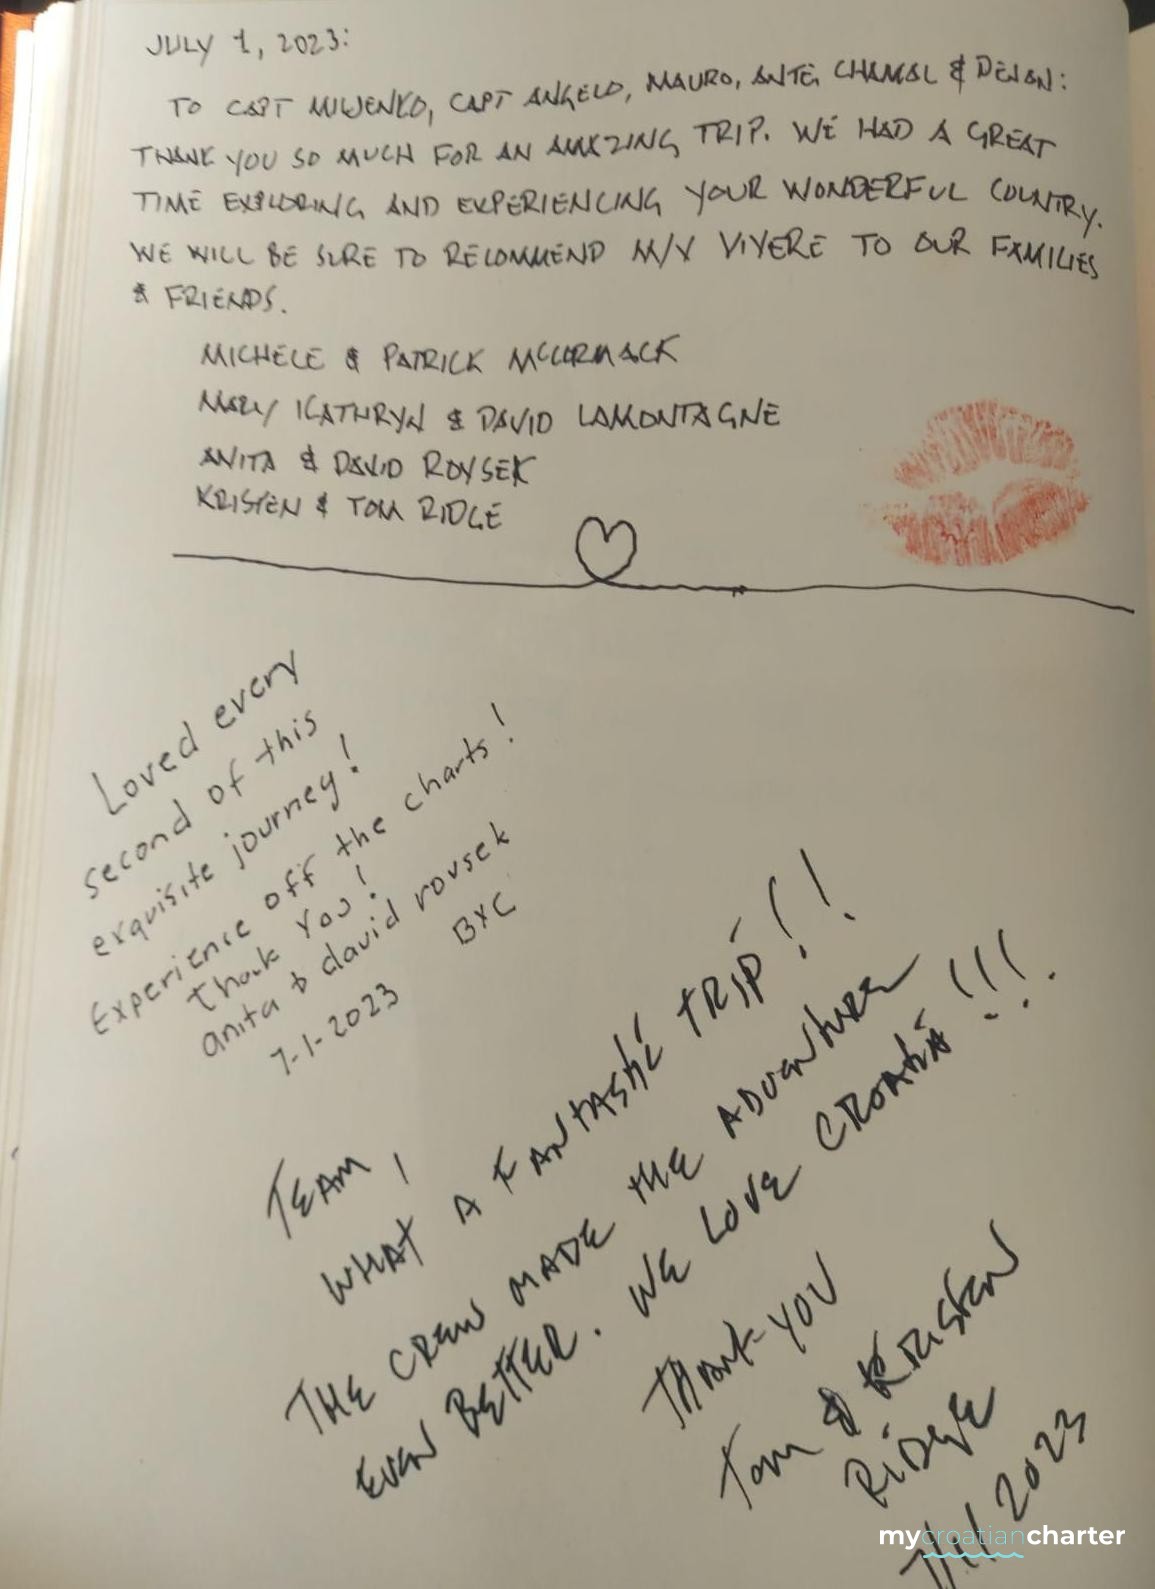 JULY 1, 2023:
TO CAPT MILJENKO, CAPT ANGELO, MAURO, ANTE, CHAMAL & DEJAN:
THANK YOU SO MUCH FOR AN AMAZING TRIP. WE HAD A GREAT
TIME EXPLORING AND EXPERIENCING YOUR WONDERFUL COUNTRY.
WE WILL BE SURE TO RECOMMEND M/Y VIVERE TO OUR FAMILIES
& FRIENDS.
MICHELE & PATRICK MCCORMACK
MARY KATHRYN & DAVID LAMONTAGNE
ANITA & DAVID ROVSEK
KRISTEN & TOM RIDGE
Loved every
second of this
exquisite journey!
Experience off the charts!
Thank you!
anita & david rovsek
BYC
7-1-2023
TEAM,
WHAT A FANTASTIC TRIP!!
THE CREW MADE THE ADVENTURE
EVEN BETTER. WE LOVE CROATIA!!!
THANK YOU
Tom & KRISTEN
RIDGE
7/1/2023
mycroatiancharter